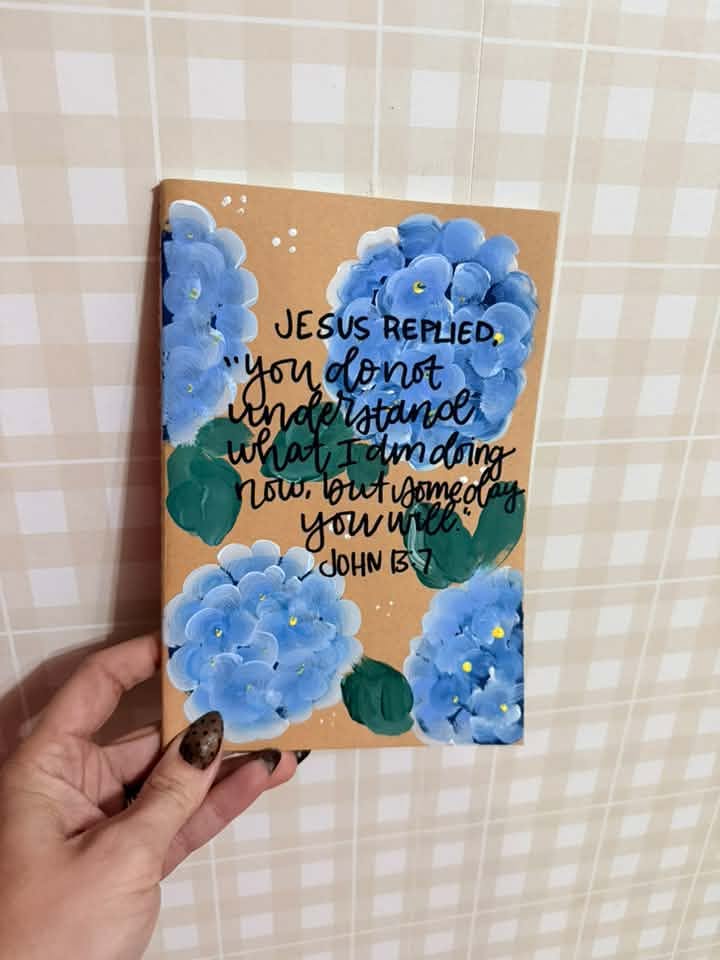 JESUS REPLIED,
"you do not
understand
what I am doing
now, but someday
you will."
JOHN 13 7